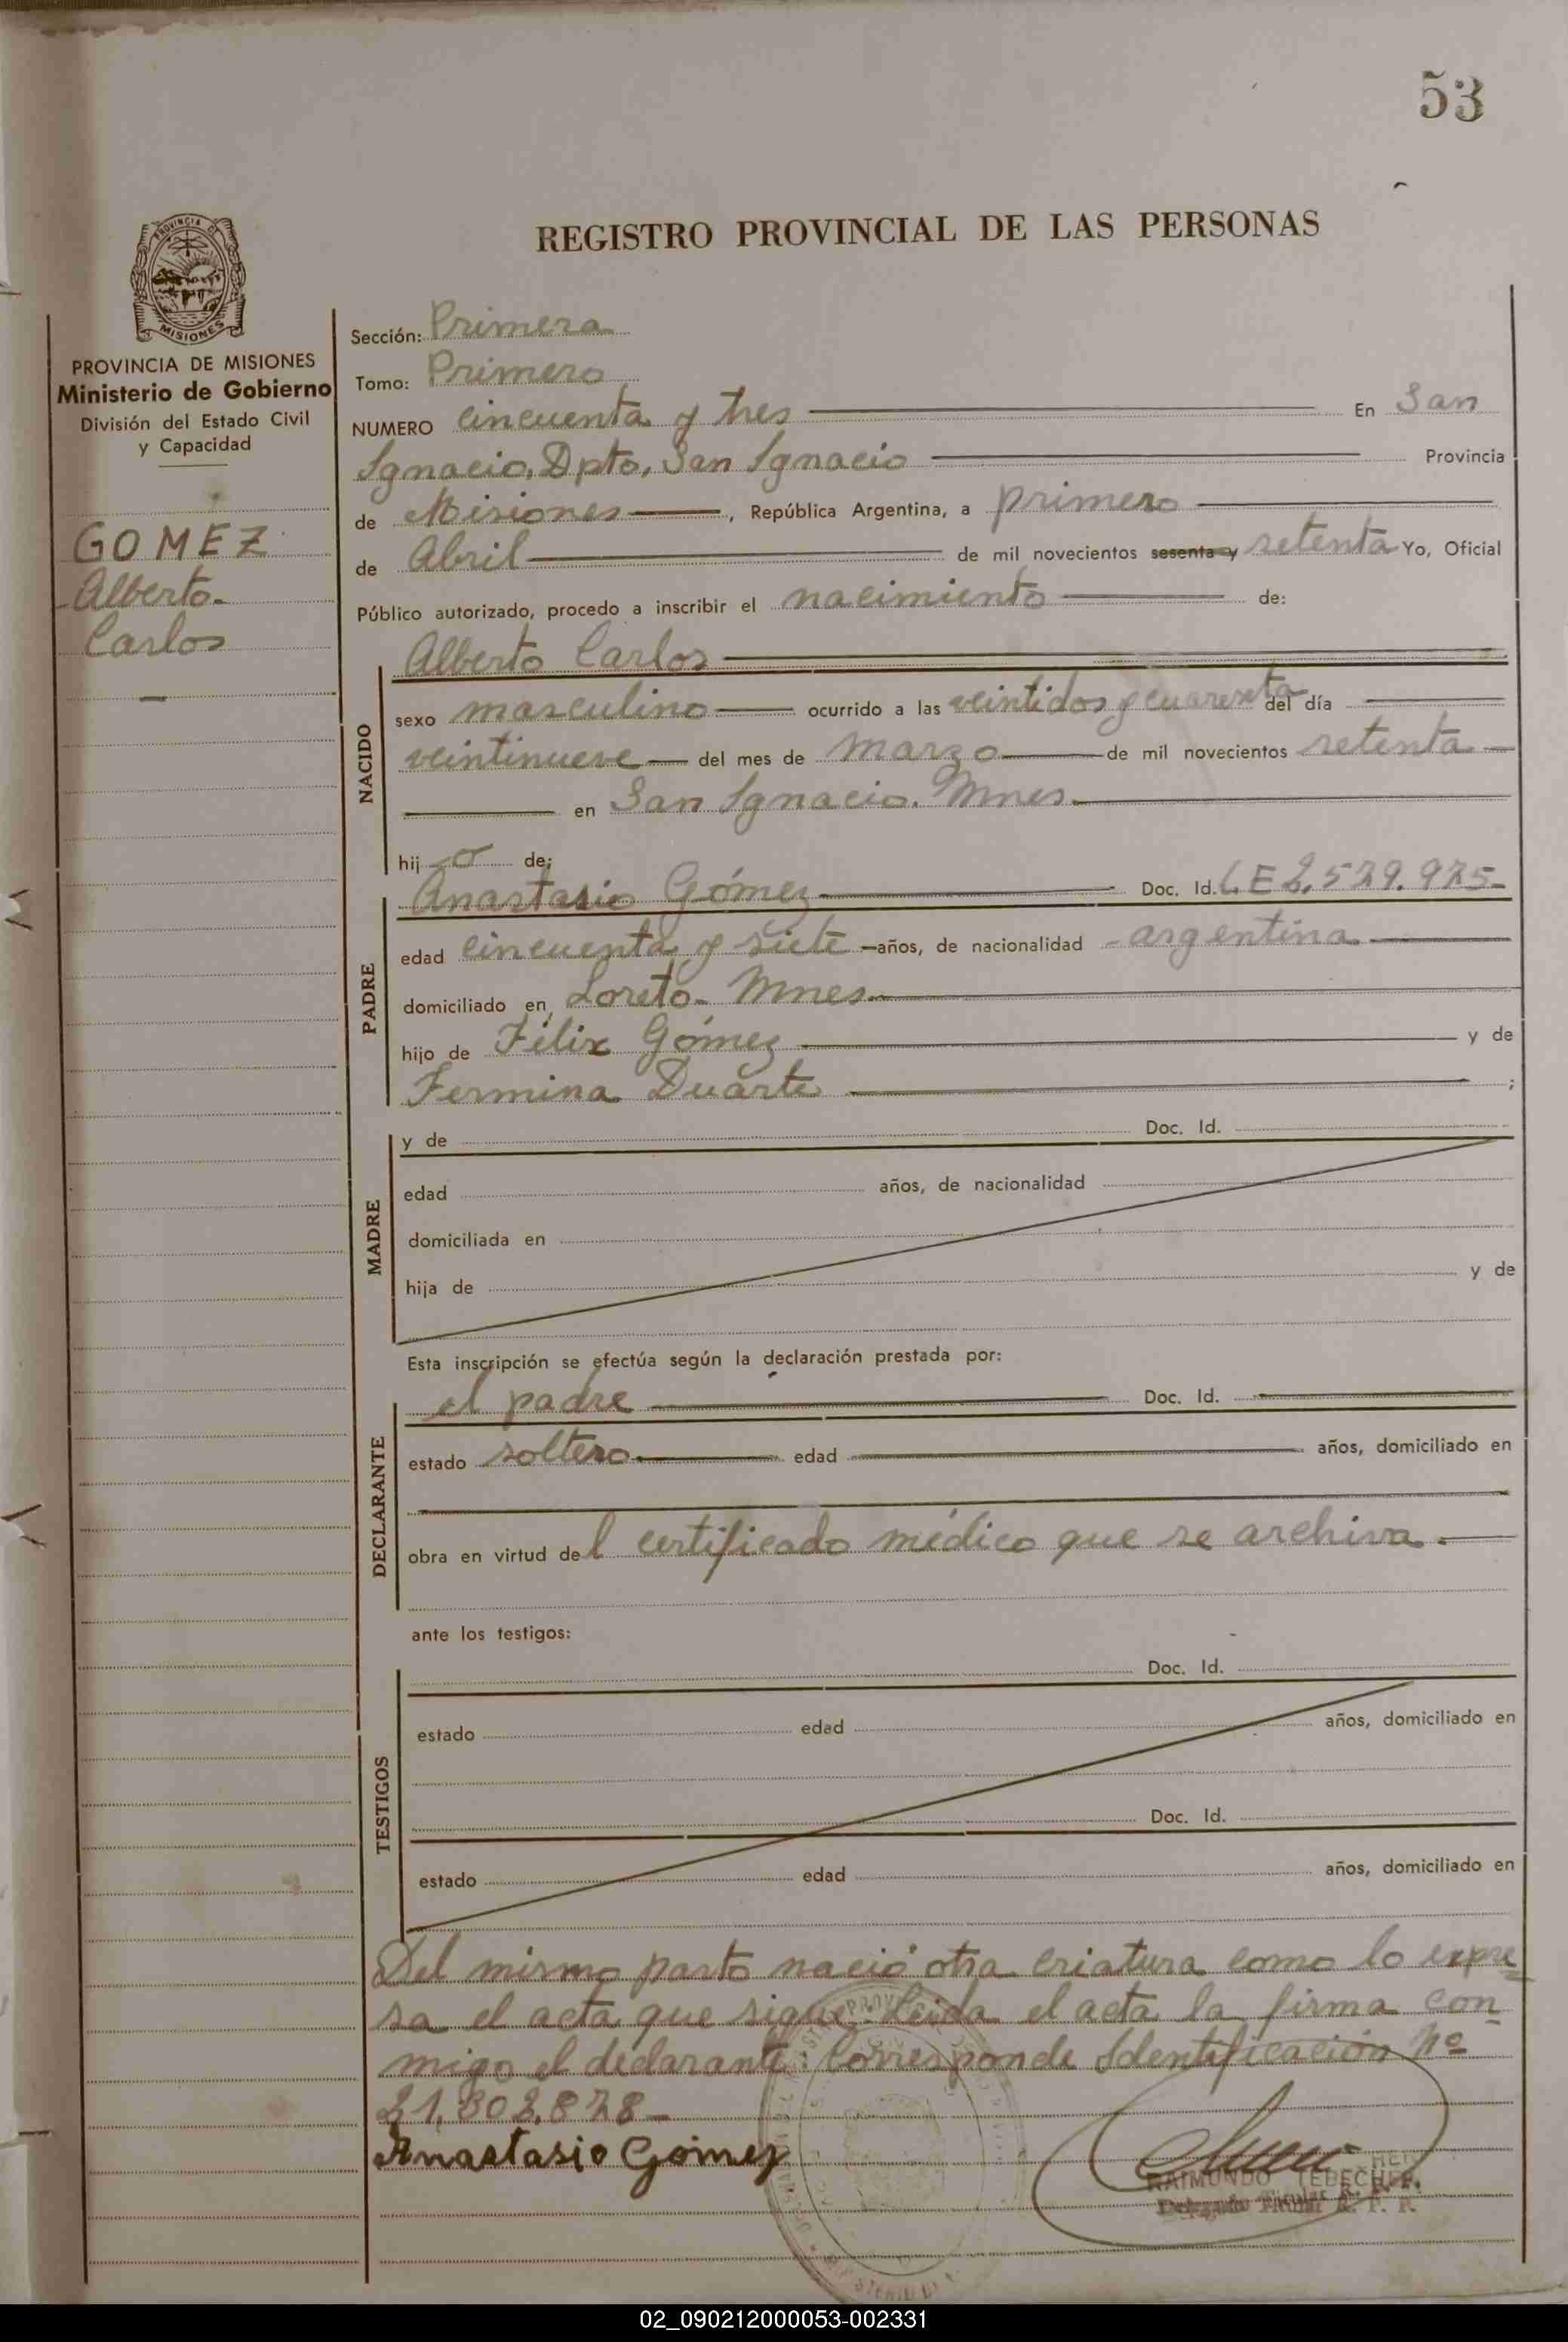 53
REGISTRO PROVINCIAL DE LAS PERSONAS
PROVINCIA DE MISIONES
Ministerio de Gobierno
División del Estado Civil
y Capacidad
GOMEZ
Alberto
Carlos
Sección: Primera
Tomo: Primero
NUMERO cincuenta y tres En San
Ignacio, Dpto, San Ignacio Provincia
de Misiones, República Argentina, a primero
de Abril de mil novecientos sesenta y setenta Yo, Oficial
Público autorizado, procedo a inscribir el nacimiento de:
NACIDO
Alberto Carlos
sexo masculino ocurrido a las veintidos y cuarenta del día
veintinueve del mes de marzo de mil novecientos setenta
en San Ignacio. Mnes.
hijo de:
PADRE
Anastasio Gómez Doc. Id. L.E 2.529.925
edad cincuenta y siete años, de nacionalidad argentina
domiciliado en Loreto- Mnes.
hijo de Félix Gómez y de
Fermina Duarte ;
MADRE
y de Doc. Id.
edad años, de nacionalidad
domiciliada en
hija de y de
Esta inscripción se efectúa según la declaración prestada por:
DECLARANTE
el padre Doc. Id.
estado soltero edad años, domiciliado en
obra en virtud del certificado médico que se archiva.
ante los testigos:
TESTIGOS
Doc. Id.
estado edad años, domiciliado en
Doc. Id.
estado edad años, domiciliado en
Del mismo parto nació otra criatura como lo expre
sa el acta que sigue. Leida el acta la firma con
migo el declarante: Corresponde Identificación Nº
21.802.828-
Anastasio Gómez
RAIMUNDO TEBECHER
Delegado Titular R. P. P.
02_090212000053-002331